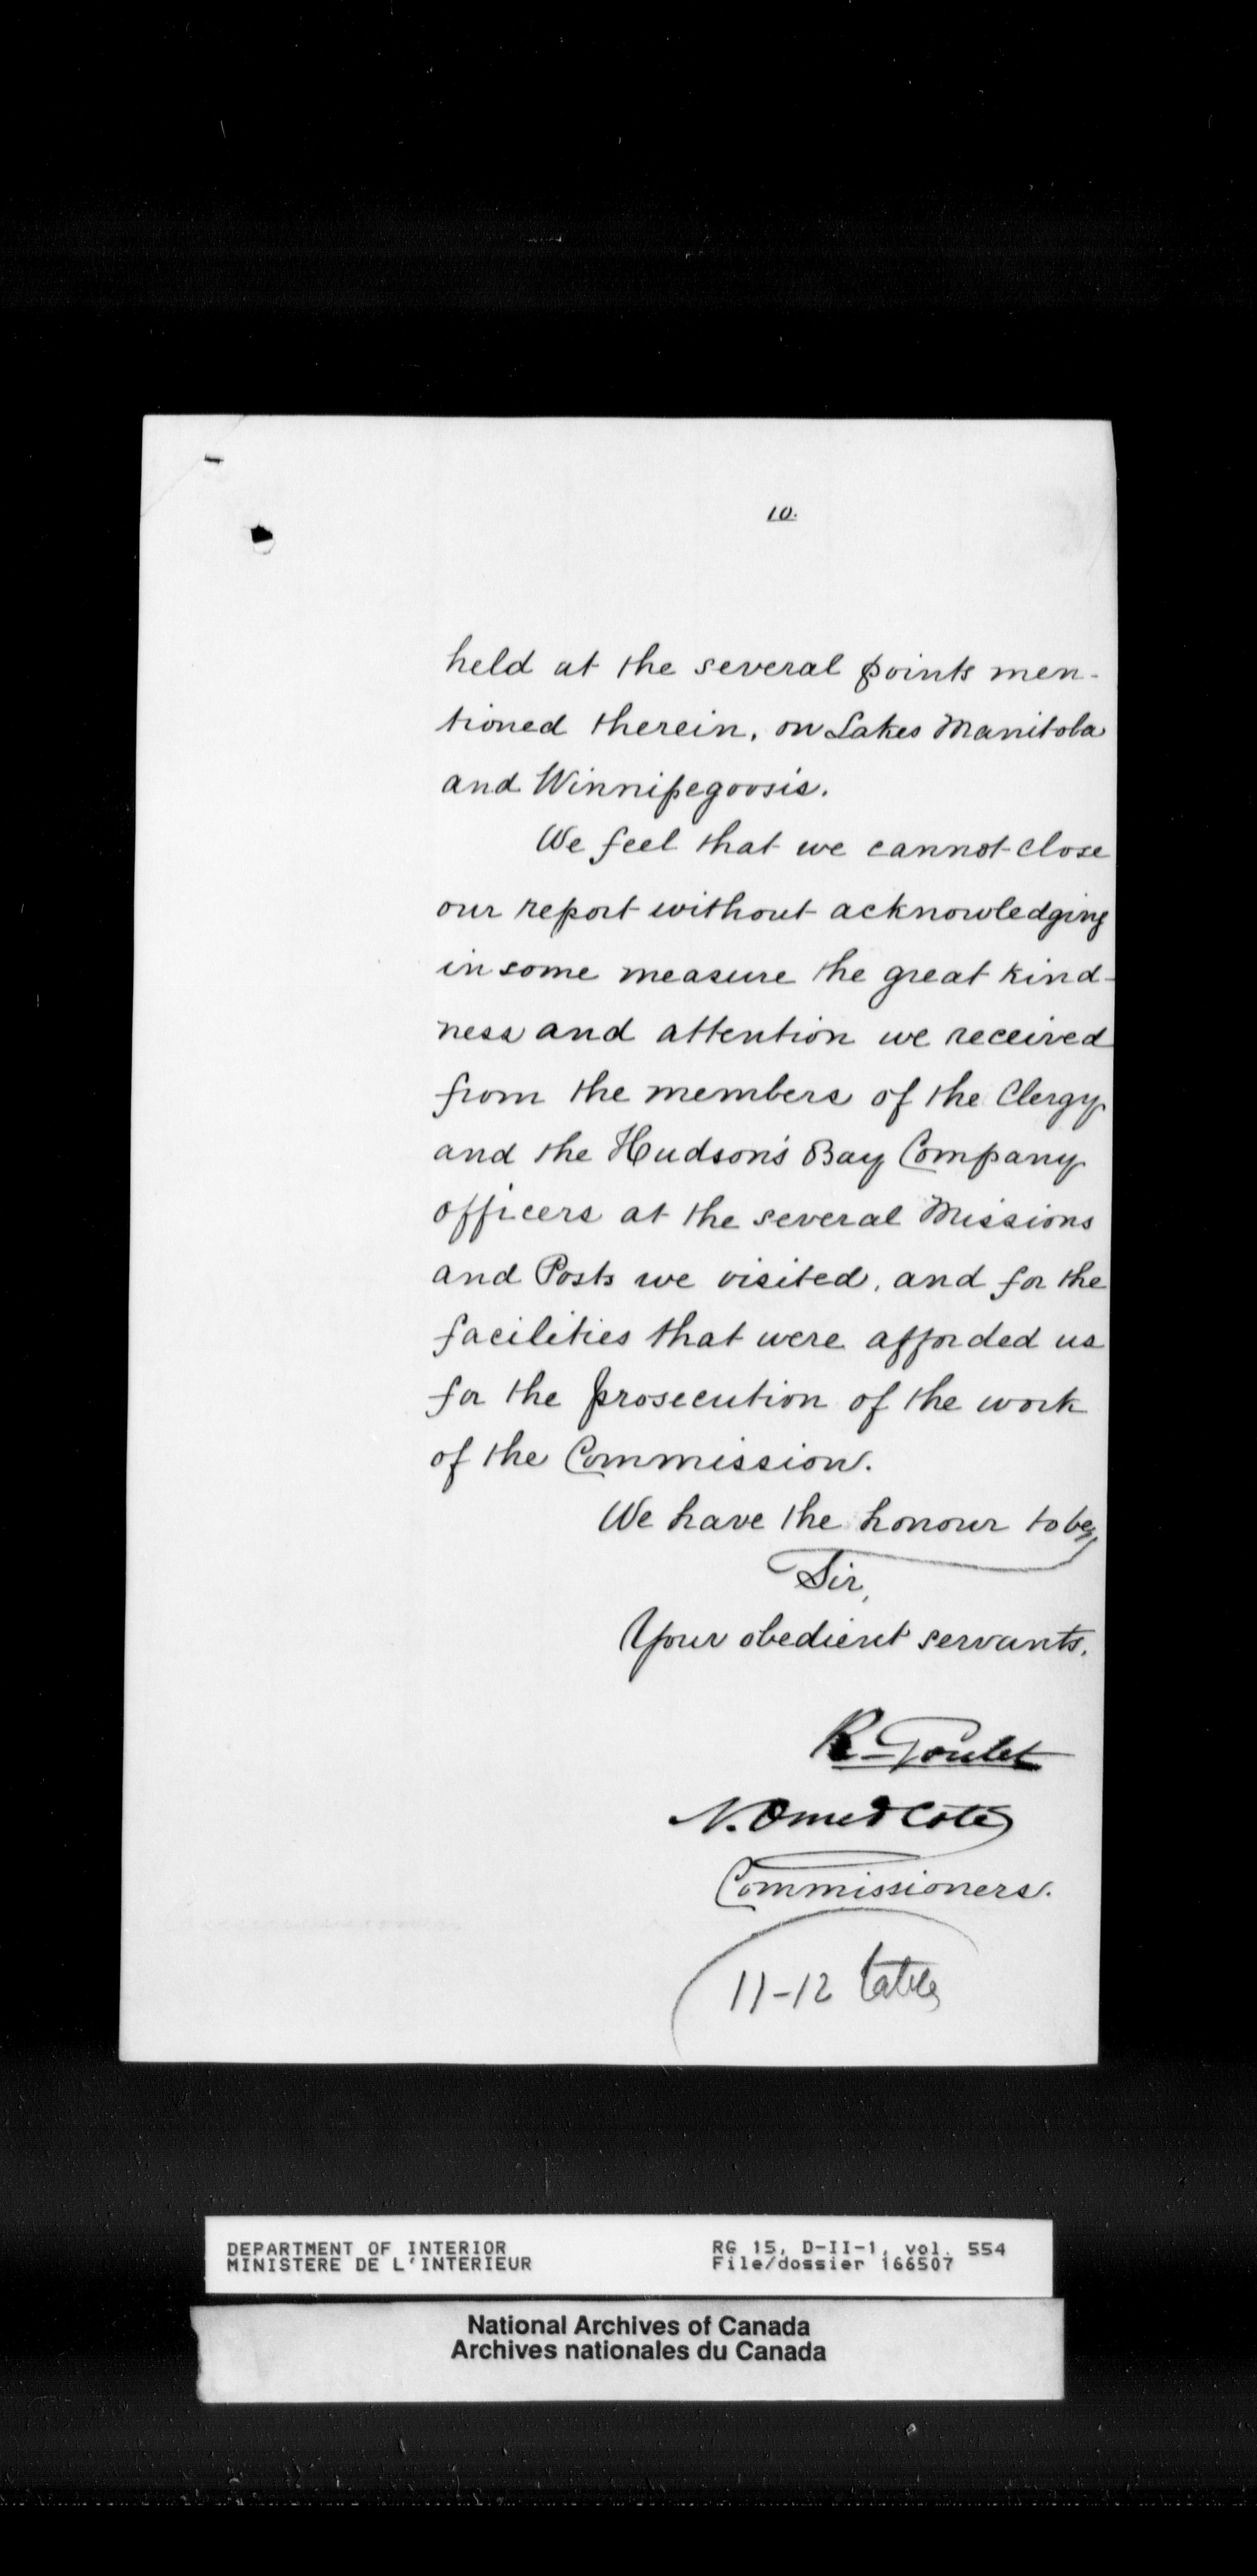 10.
held at the several points men-
tioned therein, on Lakes Manitoba
and Winnipegoosis.
We feel that we cannot close
our report without acknowledging
in some measure the great kind-
ness and attention we received
from the members of the Clergy
and the Hudson's Bay Company
officers at the several Missions
and Posts we visited, and for the
facilities that were afforded us
for the prosecution of the work
of the Commission.
We have the honour to be,
Sir,
Your obedient servants.
R. Goulet
N. Omer Coté
Commissioners.
11-12 table
DEPARTMENT OF INTERIOR RG 15, D-II-1, vol. 554
MINISTERE DE L'INTERIEUR File/dossier 166507
National Archives of Canada
Archives nationales du Canada